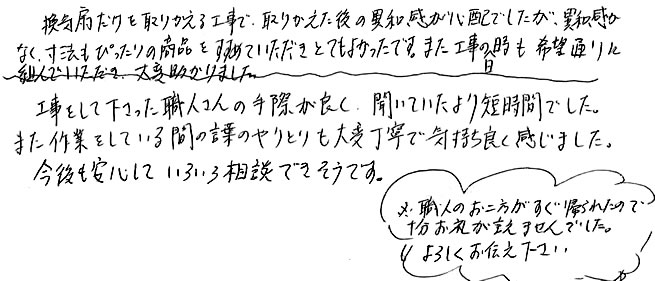 換気扇だけを取りかえる工事で、取りかえた後の異和感が心配でしたが、異和感が
なく、寸法もぴったりの商品をすすめていただきとてもよかったです。また工事の時も希望通りに
日
組んでいただき、大変助かりました。
工事をして下さった職人さんの手際が良く、聞いていたより短時間でした。
また作業をしている間の言葉のやりとりも大変丁寧で気持ち良く感じました。
今後も安心していろいろ相談できそうです。
※職人のお二方がすぐ帰られたので
十分お礼が言えませんでした。
よろしくお伝え下さい